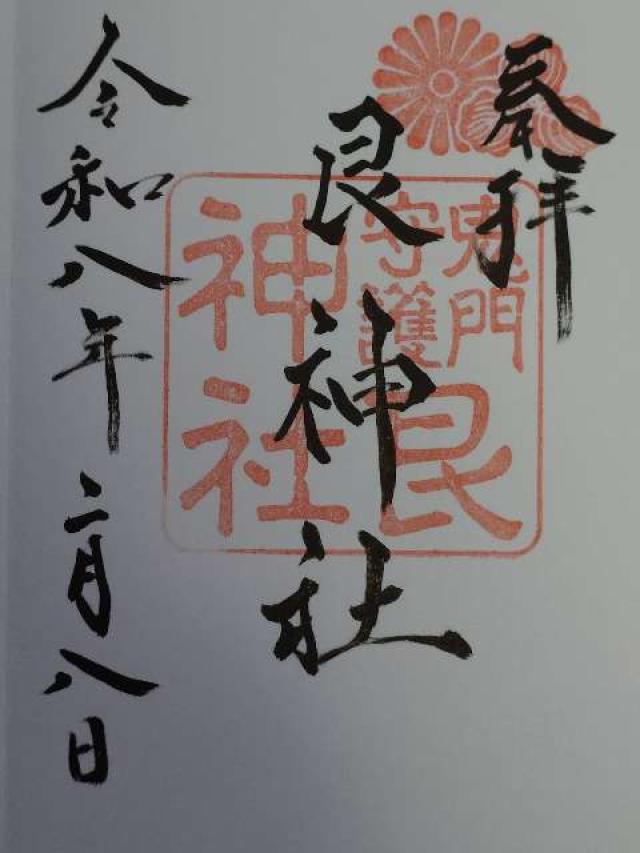 奉拝
鬼門
守護
艮
神社
艮神社
令和八年二月八日